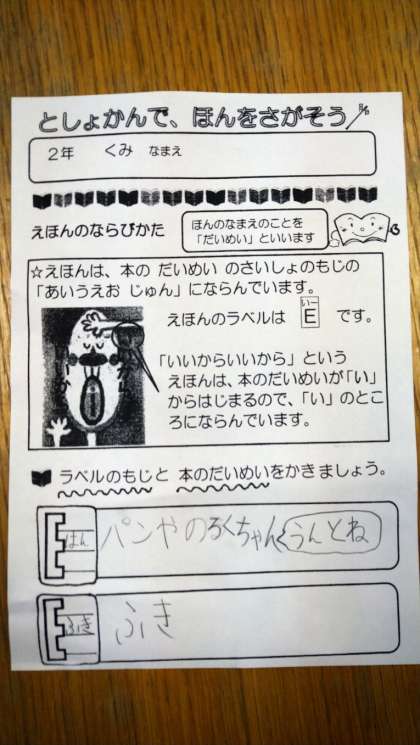 としょかんで、ほんをさがそう
2年 くみ なまえ
えほんのならびかた
ほんのなまえのことを
「だいめい」といいます
☆えほんは、本の だいめい のさいしょのもじの
「あいうえお じゅん」にならんでいます。
えほんのラベルは E です。
いー
「いいからいいから」という
えほんは、本のだいめいが「い」
からはじまるので、「い」のとこ
ろにならんでいます。
ラベルのもじと 本のだいめいをかきましょう。
はん パンやのろくちゃん うんとね
ふき ふき